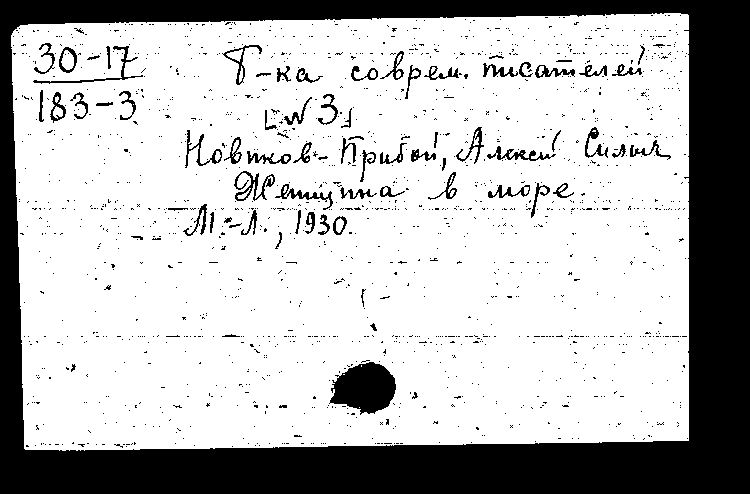 30-17
183-3
Б-ка соврем. писателей
[№ 3]
Новиков-Прибой, Алексей Силыч
Женщина в море.
М.-Л., 1930.